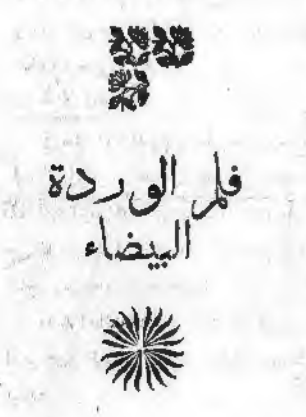 فلم الوردة
البيضاء